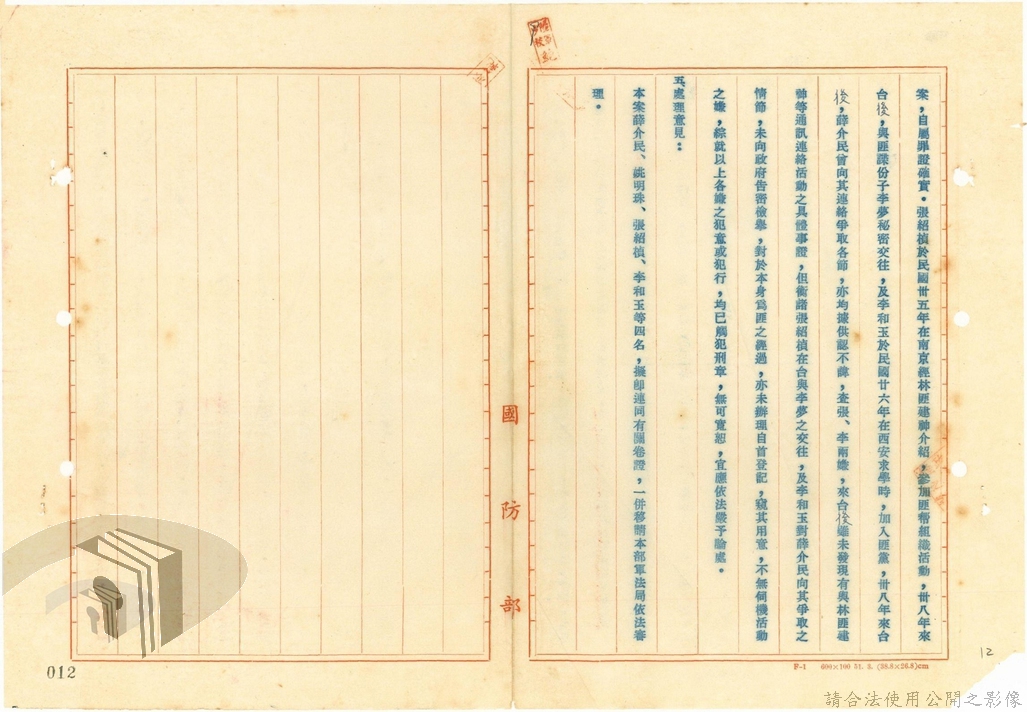 案，自屬罪證確實。張紹楨於民國卅五年在南京經林匪建神介紹，參加匪幫組織活動，卅八年來
台後，與匪諜份子李夢秘密交往，及李和玉於民國廿六年在西安求學時，加入匪黨，卅八年來台
後，薛介民曾向其連絡爭取各節，亦均據供認不諱，查張、李兩嫌，來台後雖未發現有與林匪建
神等通訊連絡活動之具體事證，但衡諸張紹楨在台與李夢之交往，及李和玉對薛介民向其爭取之
情節，未向政府告密檢舉，對於本身為匪之經過，亦未辦理自首登記，窺其用意，不無伺機活動
之嫌，綜就以上各嫌之犯意或犯行，均已觸犯刑章，無可寬恕，宜應依法嚴予論處。
五、處理意見：
本案薛介民、姚明珠、張紹楨、李和玉等四名，擬即連同有關卷證，一併移請本部軍法局依法審
理。
國防部
F-1 600×100 51. 5. (38.8×26.8)cm
12
012
請合法使用公開之影像